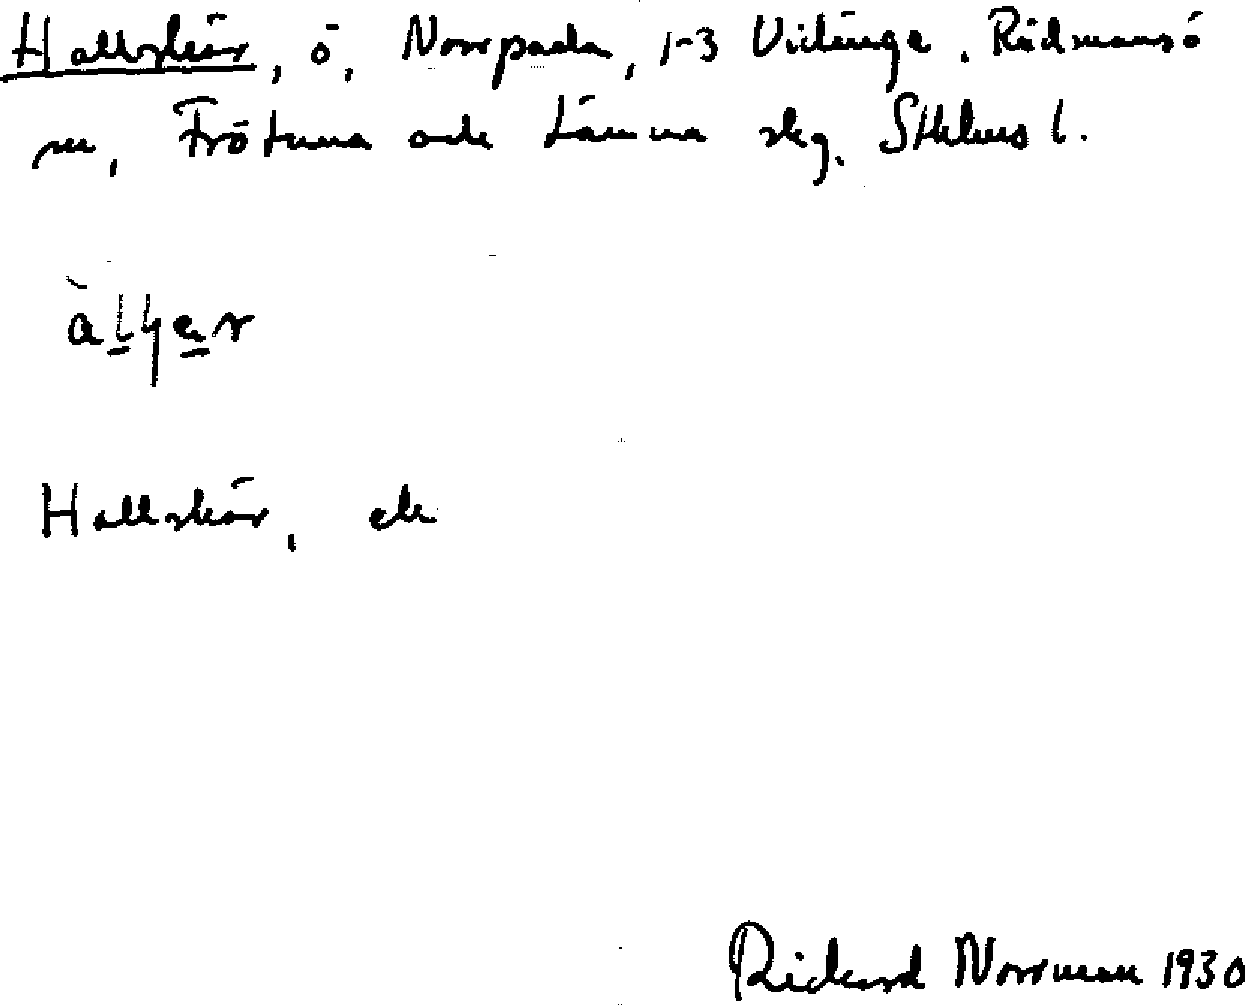 Hallskär, ö, Norrpada, 1-3 Vidinge, Rådmansö
sn, Frötuna och Länna skg, Sthlms l.
Hallskär, ek
Rickard Norrman 1930